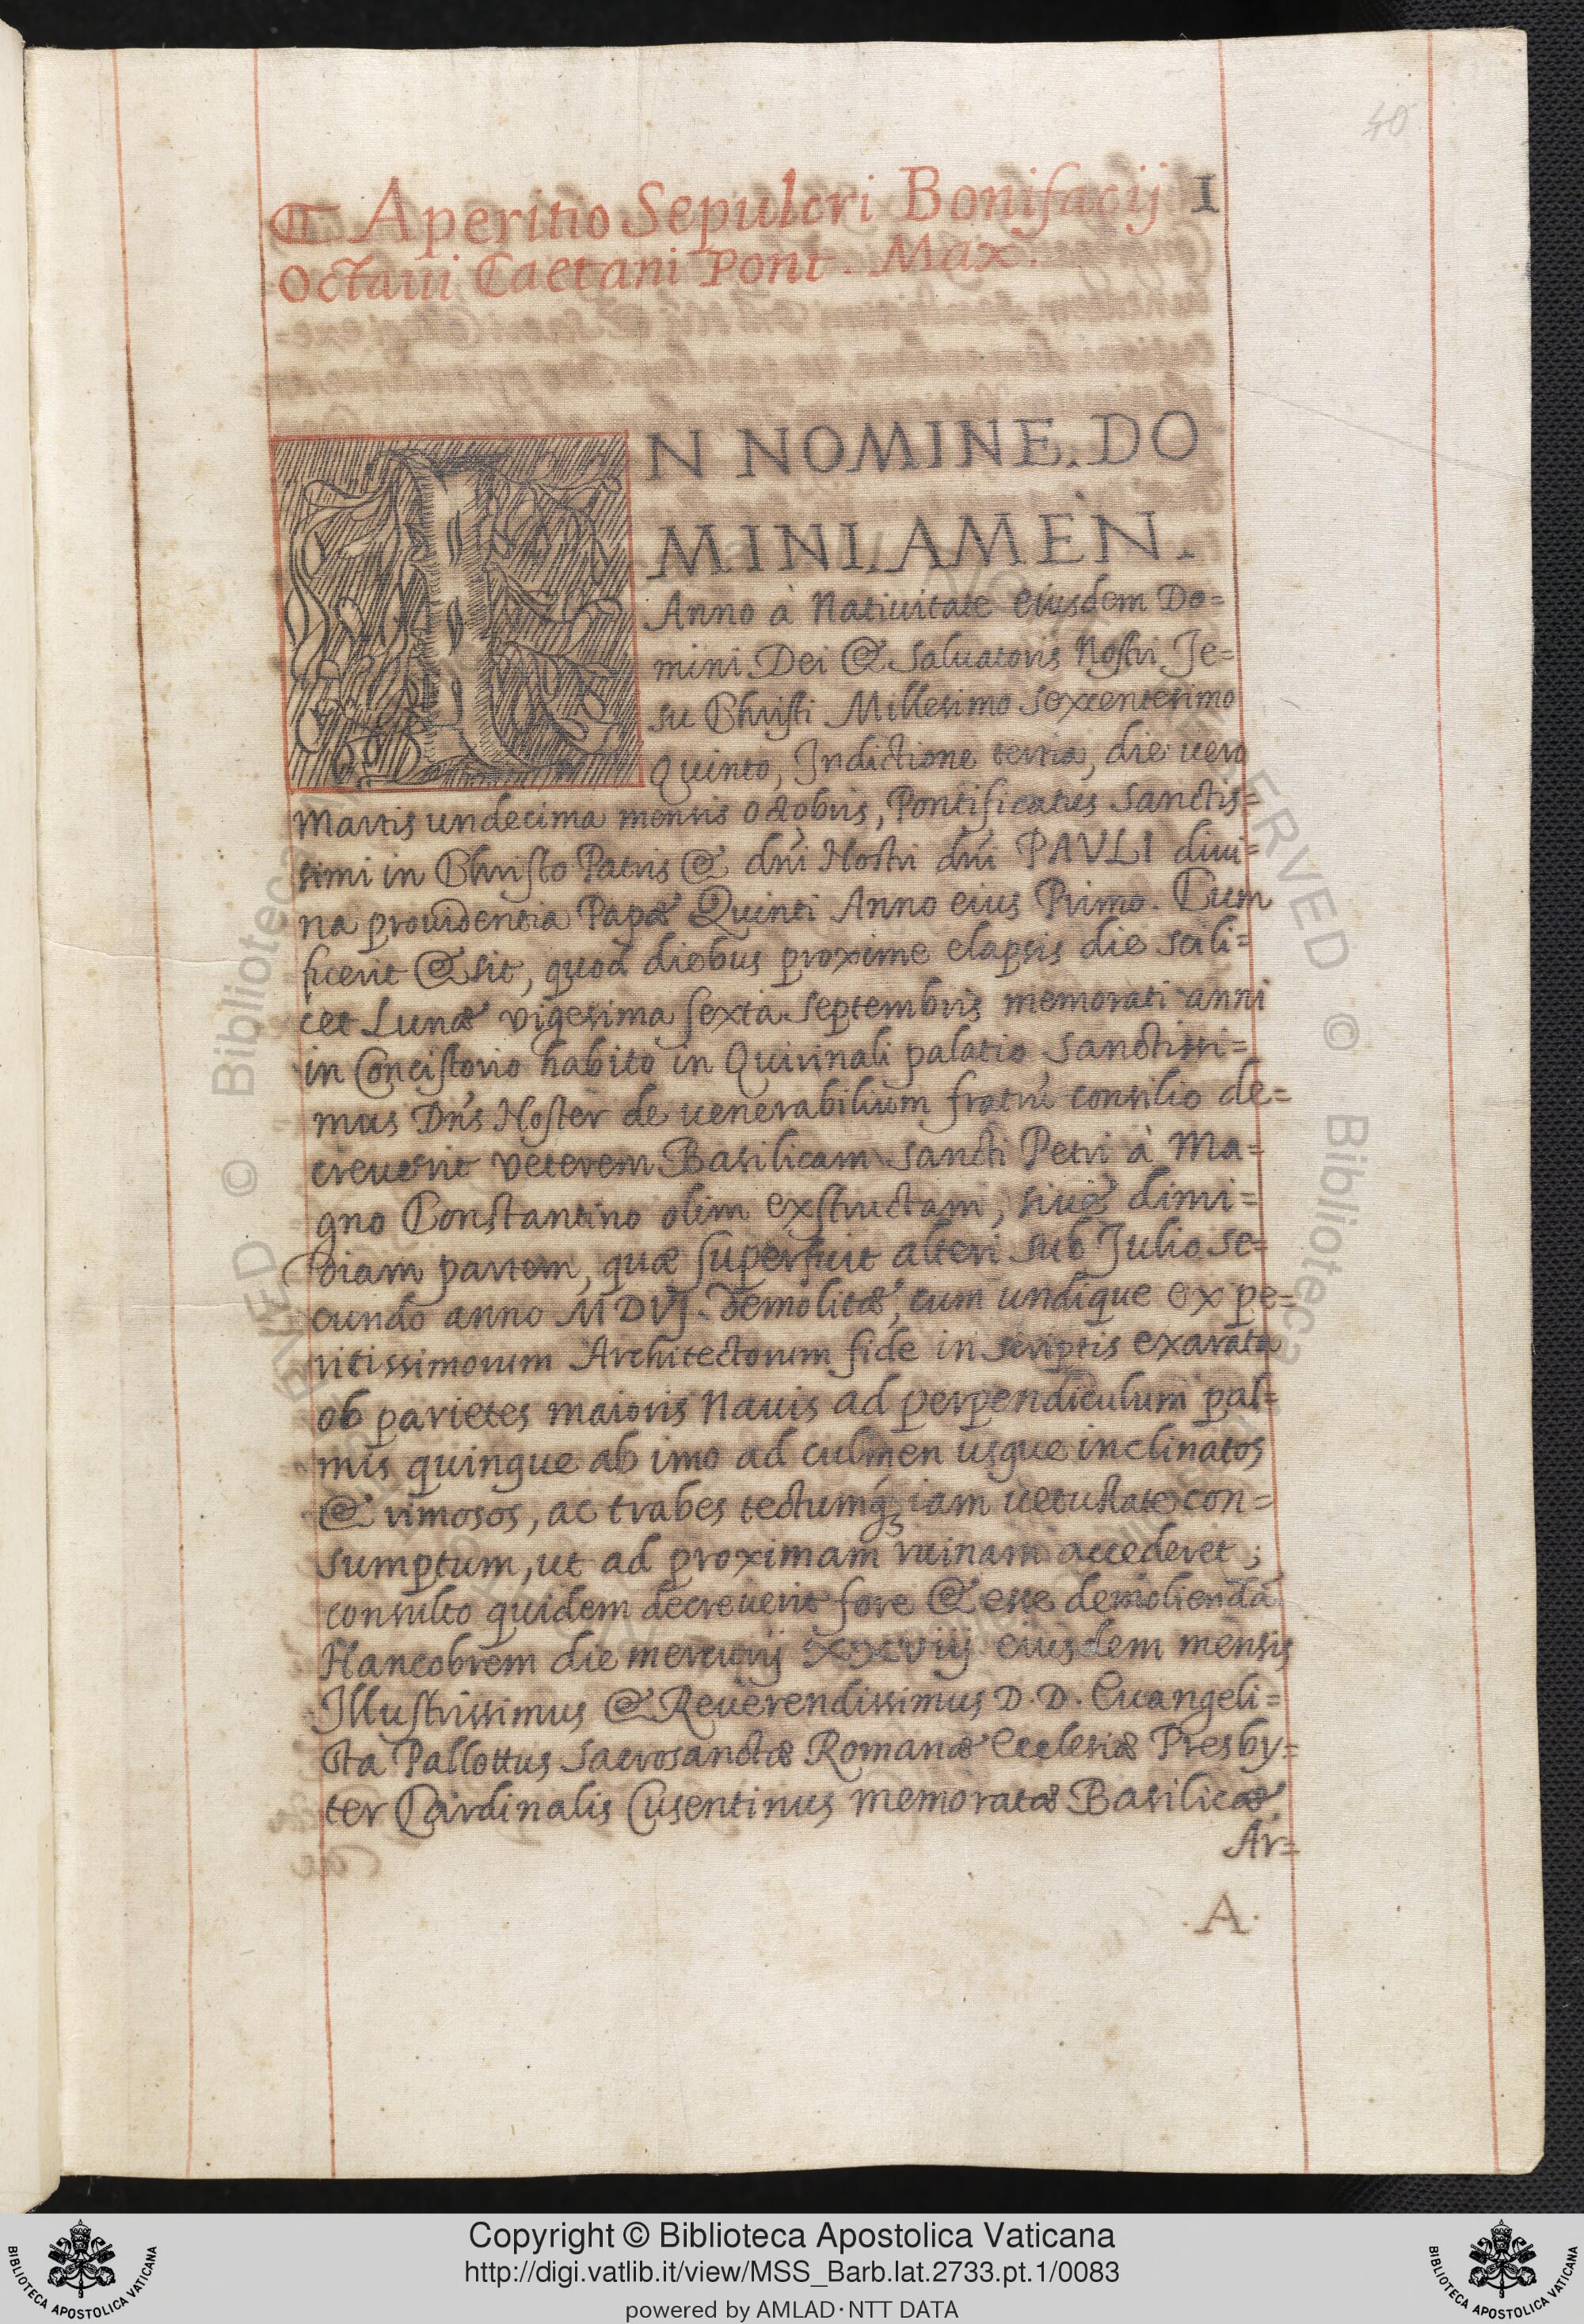 40
¶ Aperitio Sepulcri Bonifacij I
Octaui Caetani Pont. Max.
IN NOMINE. DO
MINI. AMEN.
Anno à Natiuitate eiusdem Do=
mini Dei & Saluatoris Nostri Je=
su Christi Millesimo sexcentesimo
Quinto, Indictione tertia, die uero
Martis undecima mensis Octobris, Pontificatus Sanctis=
simi in Christo Patris & dñi Nostri dñi PAVLI diui=
na prouidentia Papæ Quinti Anno eius Primo. Cum
fuerit & sit, quod diebus proxime elapsis die scili=
cet Lunæ vigesima sexta Septembris memorati anni
in Concistorio habito in Quirinali palatio Sanctissi=
mus Dñs Noster de uenerabilium fratrũ consilio de=
creuerit veterem Basilicam Sancti Petri à Ma=
gno Constantino olim exstructam, siue dimi=
diam partem, quæ superfuit alteri sub Julio se=
cundo anno MDVJ. demolitæ, cum undique ex pe=
ritissimorum Architectorum fide in scriptis exarata
ob parietes maioris Nauis ad perpendiculum pal=
mis quinque ab imo ad culmen usque inclinatos
& rimosos, ac trabes tectumq́ꝫ iam uetustate con=
sumptum, ut ad proximam ruinam accederet;
consulto quidem decreuerit fore & esse demoliendã
Hancobrem die mercurij xxviij eiusdem mensis
Illustrissimus & Reuerendissimus D. D. Euangeli=
sta Pallottus Sacrosanctæ Romanæ Ecclesiæ Presby=
ter Cardinalis Cusentinus memoratæ Basilicæ
Ar=
.A.
Copyright © Biblioteca Apostolica Vaticana
http://digi.vatlib.it/view/MSS_Barb.lat.2733.pt.1/0083
powered by AMLAD·NTT DATA
BIBLIOTECA APOSTOLICA VATICANA
BIBLIOTECA APOSTOLICA VATICANA